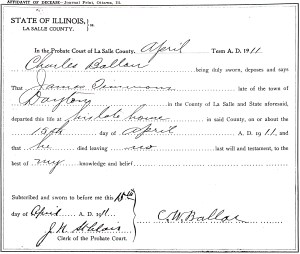 AFFIDAVIT OF DECEASE—Journal Print, Ottawa, Ill.
STATE OF ILLINOIS,
LA SALLE COUNTY. } ss.
In the Probate Court of La Salle County, April Term A. D. 1911
Charles Ballou being duly sworn, deposes and says
That James Timmons late of the town of
Dayton in the County of La Salle and State aforesaid,
departed this life at his late home in said County, on or about the
15th day of April A. D. 1911, and
that he died leaving no last will and testament, to the
best of my knowledge and belief
Subscribed and sworn to before me this 18th
day of April A. D. 1911.
J. N.
Clerk of the Probate Court.
C. W. Ballou